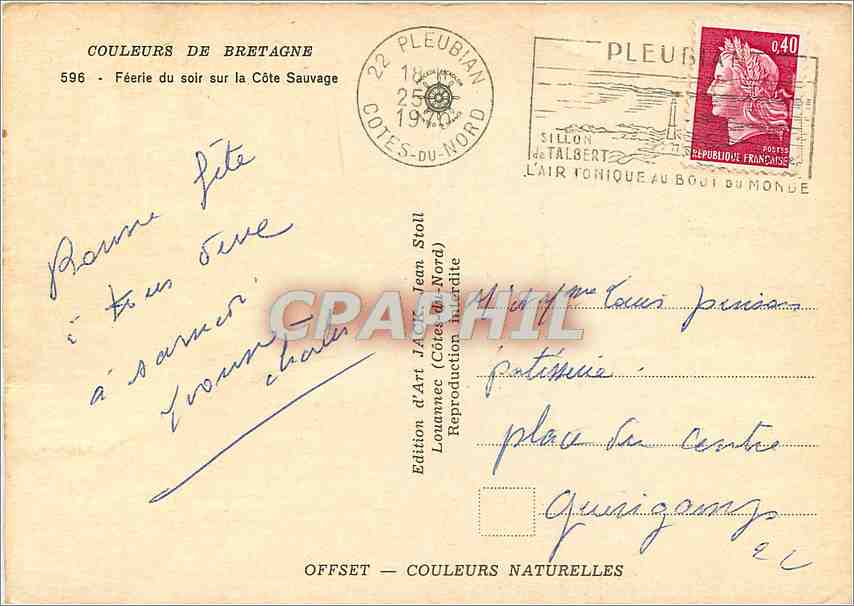 COULEURS DE BRETAGNE
596 - Féerie du soir sur la Côte Sauvage
22 PLEUBIAN
18
25
1970
COTES-DU-NORD
PLEUBI
SILLON
de TALBERT
L'AIR TONIQUE AU BOUT DU MONDE
0,40
POSTES
REPUBLIQUE FRANÇAISE
Bonne fête
à tous deux
à samedi
Yvonne
Charles
CPAPHIL
Edition d'Art JACK. Jean Stoll
Louannec (Côtes-du-Nord)
Reproduction interdite
Louis
patisserie
place du centre
Guingamp
22
OFFSET — COULEURS NATURELLES